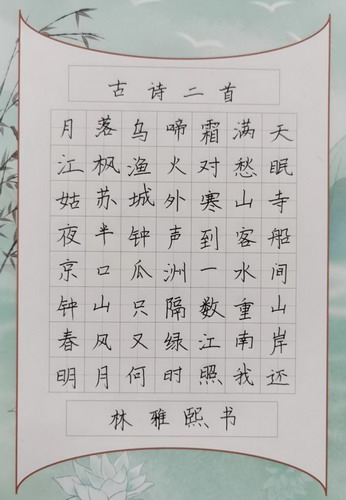 古诗二首
月落乌啼霜满天
江枫渔火对愁眠
姑苏城外寒山寺
夜半钟声到客船
京口瓜洲一水间
钟山只隔数重山
春风又绿江南岸
明月何时照我还
林雅熙书